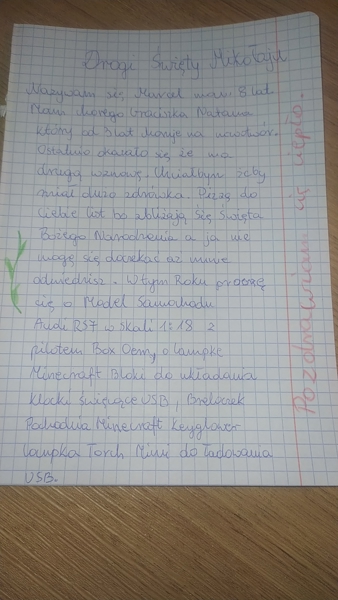 Drogi Święty Mikołaju
Nazywam się Marcel mam 8 lat.
Mam chorego braciszka Natana
który od 3 lat choruje na nowotwór.
Ostatnio okazało się że ma
drugą wznowę. Chciałbym żeby
miał dużo zdrówka. Piszę do
Ciebie list bo zbliżają Się Święta
Bożego Narodzenia a ja nie
mogę się doczekać aż mnie
odwiedzisz. W tym Roku proszę
cię o Model Samochodu
Audi RS7 w skali 1:18 z
pilotem Box Oem, o lampkę
Minecraft Bloki do układania
klocki świecące USB, Breloczek
Pochodnia Minecraft Keyglower
lampka Torch Mini do ładowania
USB.
Pozdrawiam cię ciepło.